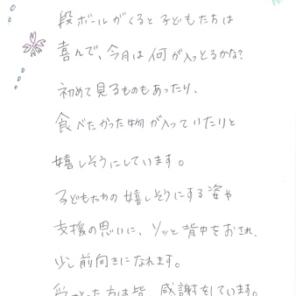 段ボールがくると子どもたちは
喜んで、今月は何が入っとるかな?
初めて見るものもあったり、
食べたかった物が入っていたりと
嬉しそうにしています。
子どもたちの嬉しそうにする姿や
支援の思いに、ソッと背中をおされ、
少し前向きになれます。
受とった方は皆、感謝をしています。